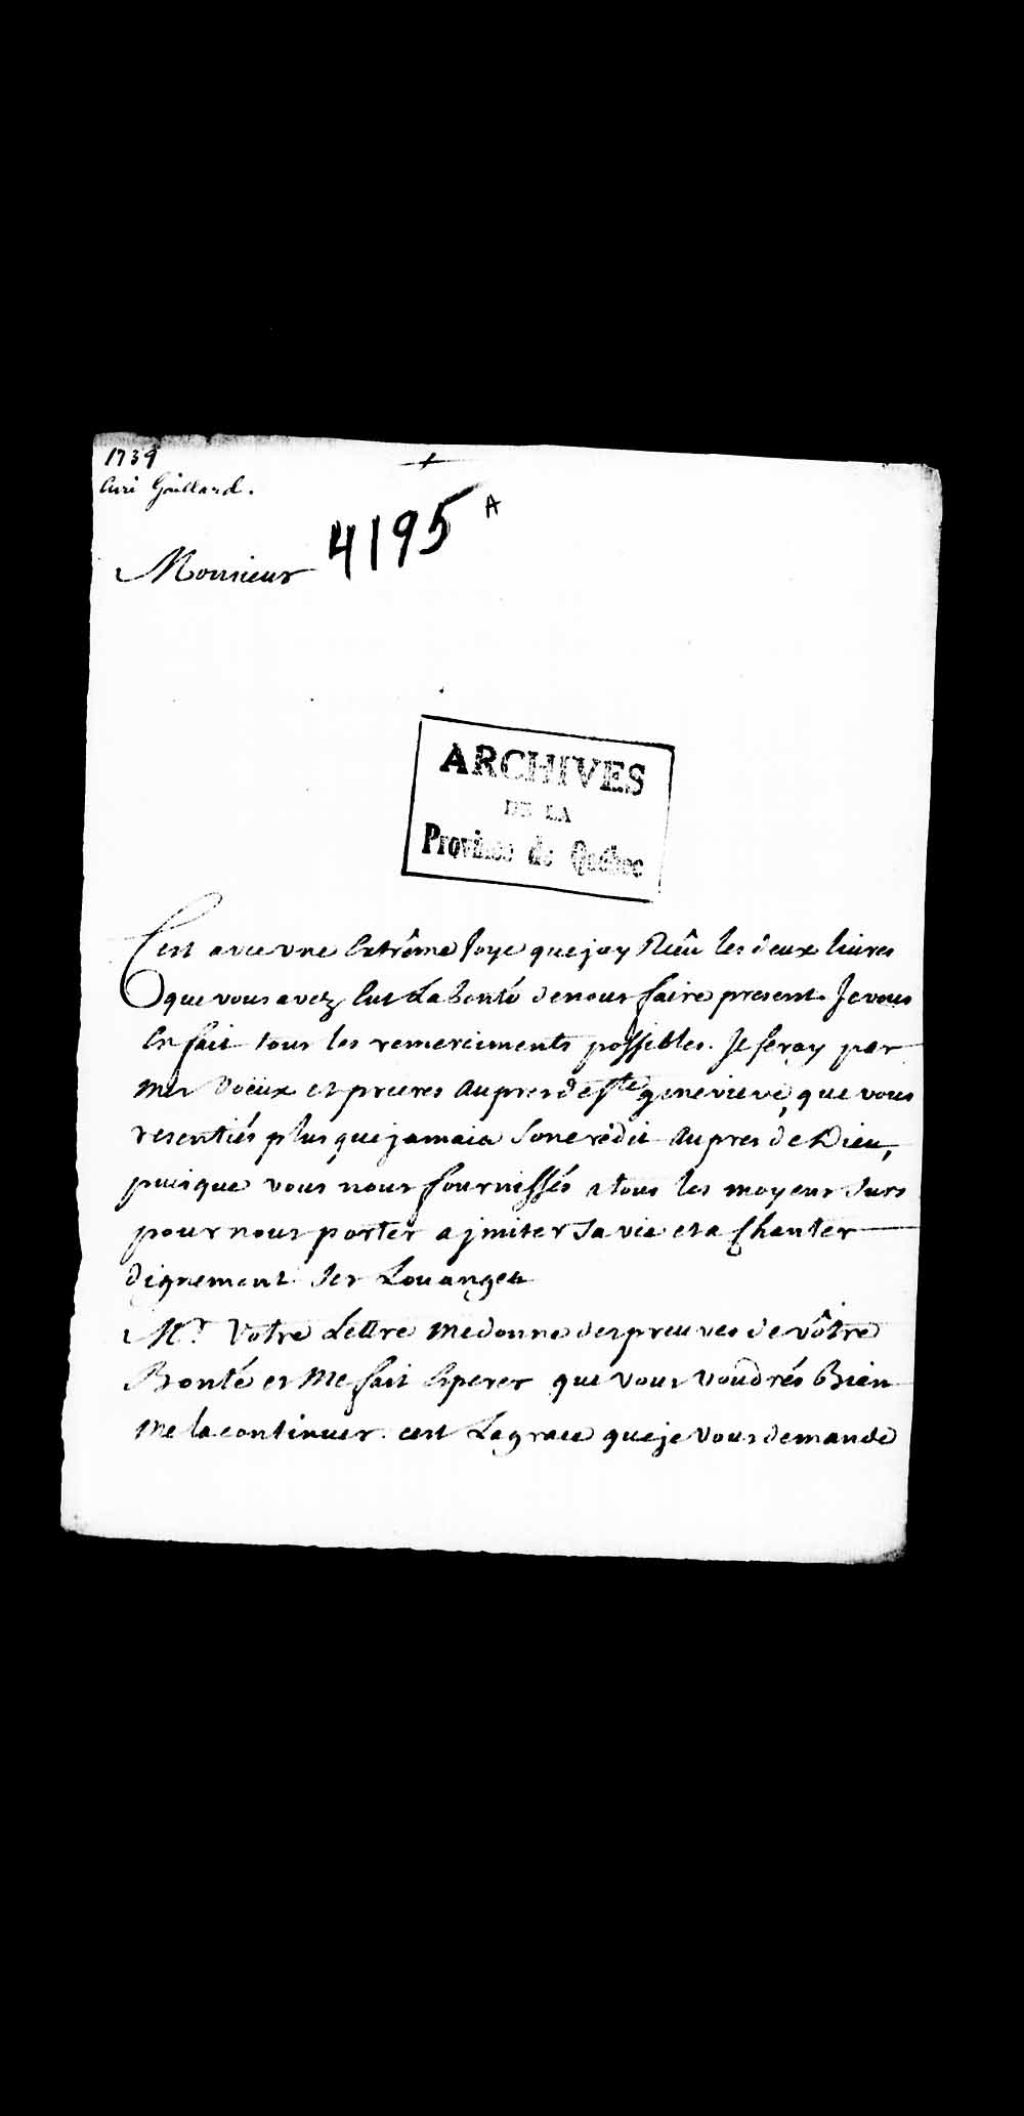 1739
Curé Gaillard.
+
4195 A
Monsieur
ARCHIVES
DE LA
Province de Québec
C'est avec vne Extrême Joye que jay Receû les deux liures
que vous avez Eut La bonté de nous faire present. Je vous
En fait tous les remerciments possibles. Je feray par
mes Voeux et prieres Aupres de Ste genevieve, que vous
resentiés plus que jamais Son crédit Aupres de Dieu,
puisque vous nous fournissés a tous les moyens Surs
pour nous porter a jmiter Sa vie et a Chanter
dignement Ses Louanges
Mr. Votre Lettre me donne des preuves de vôtre
Bonté et Me fait Esperer que vous voudrés Bien
Me la continuer. cest La grace que je vous demande